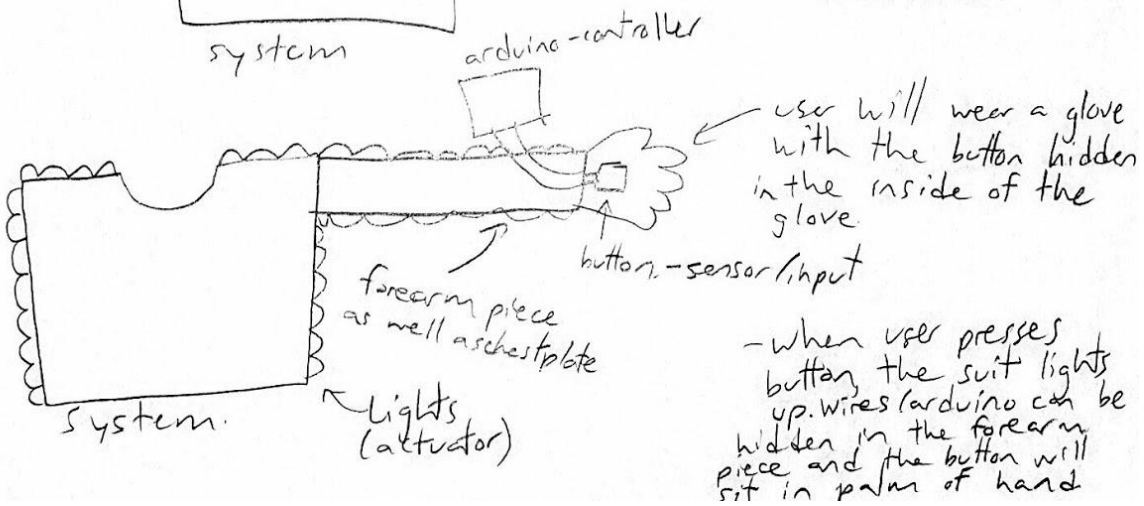 system
arduino-controller
user will wear a glove
with the button hidden
in the inside of the
glove.
button.-sensor/input
forearm piece
as well aschestplate
-when user presses
button, the suit lights
up.wires/arduino can be
hidden in the forearm
piece and the button will
sit in palm of hand
System.
Lights
(actuator)